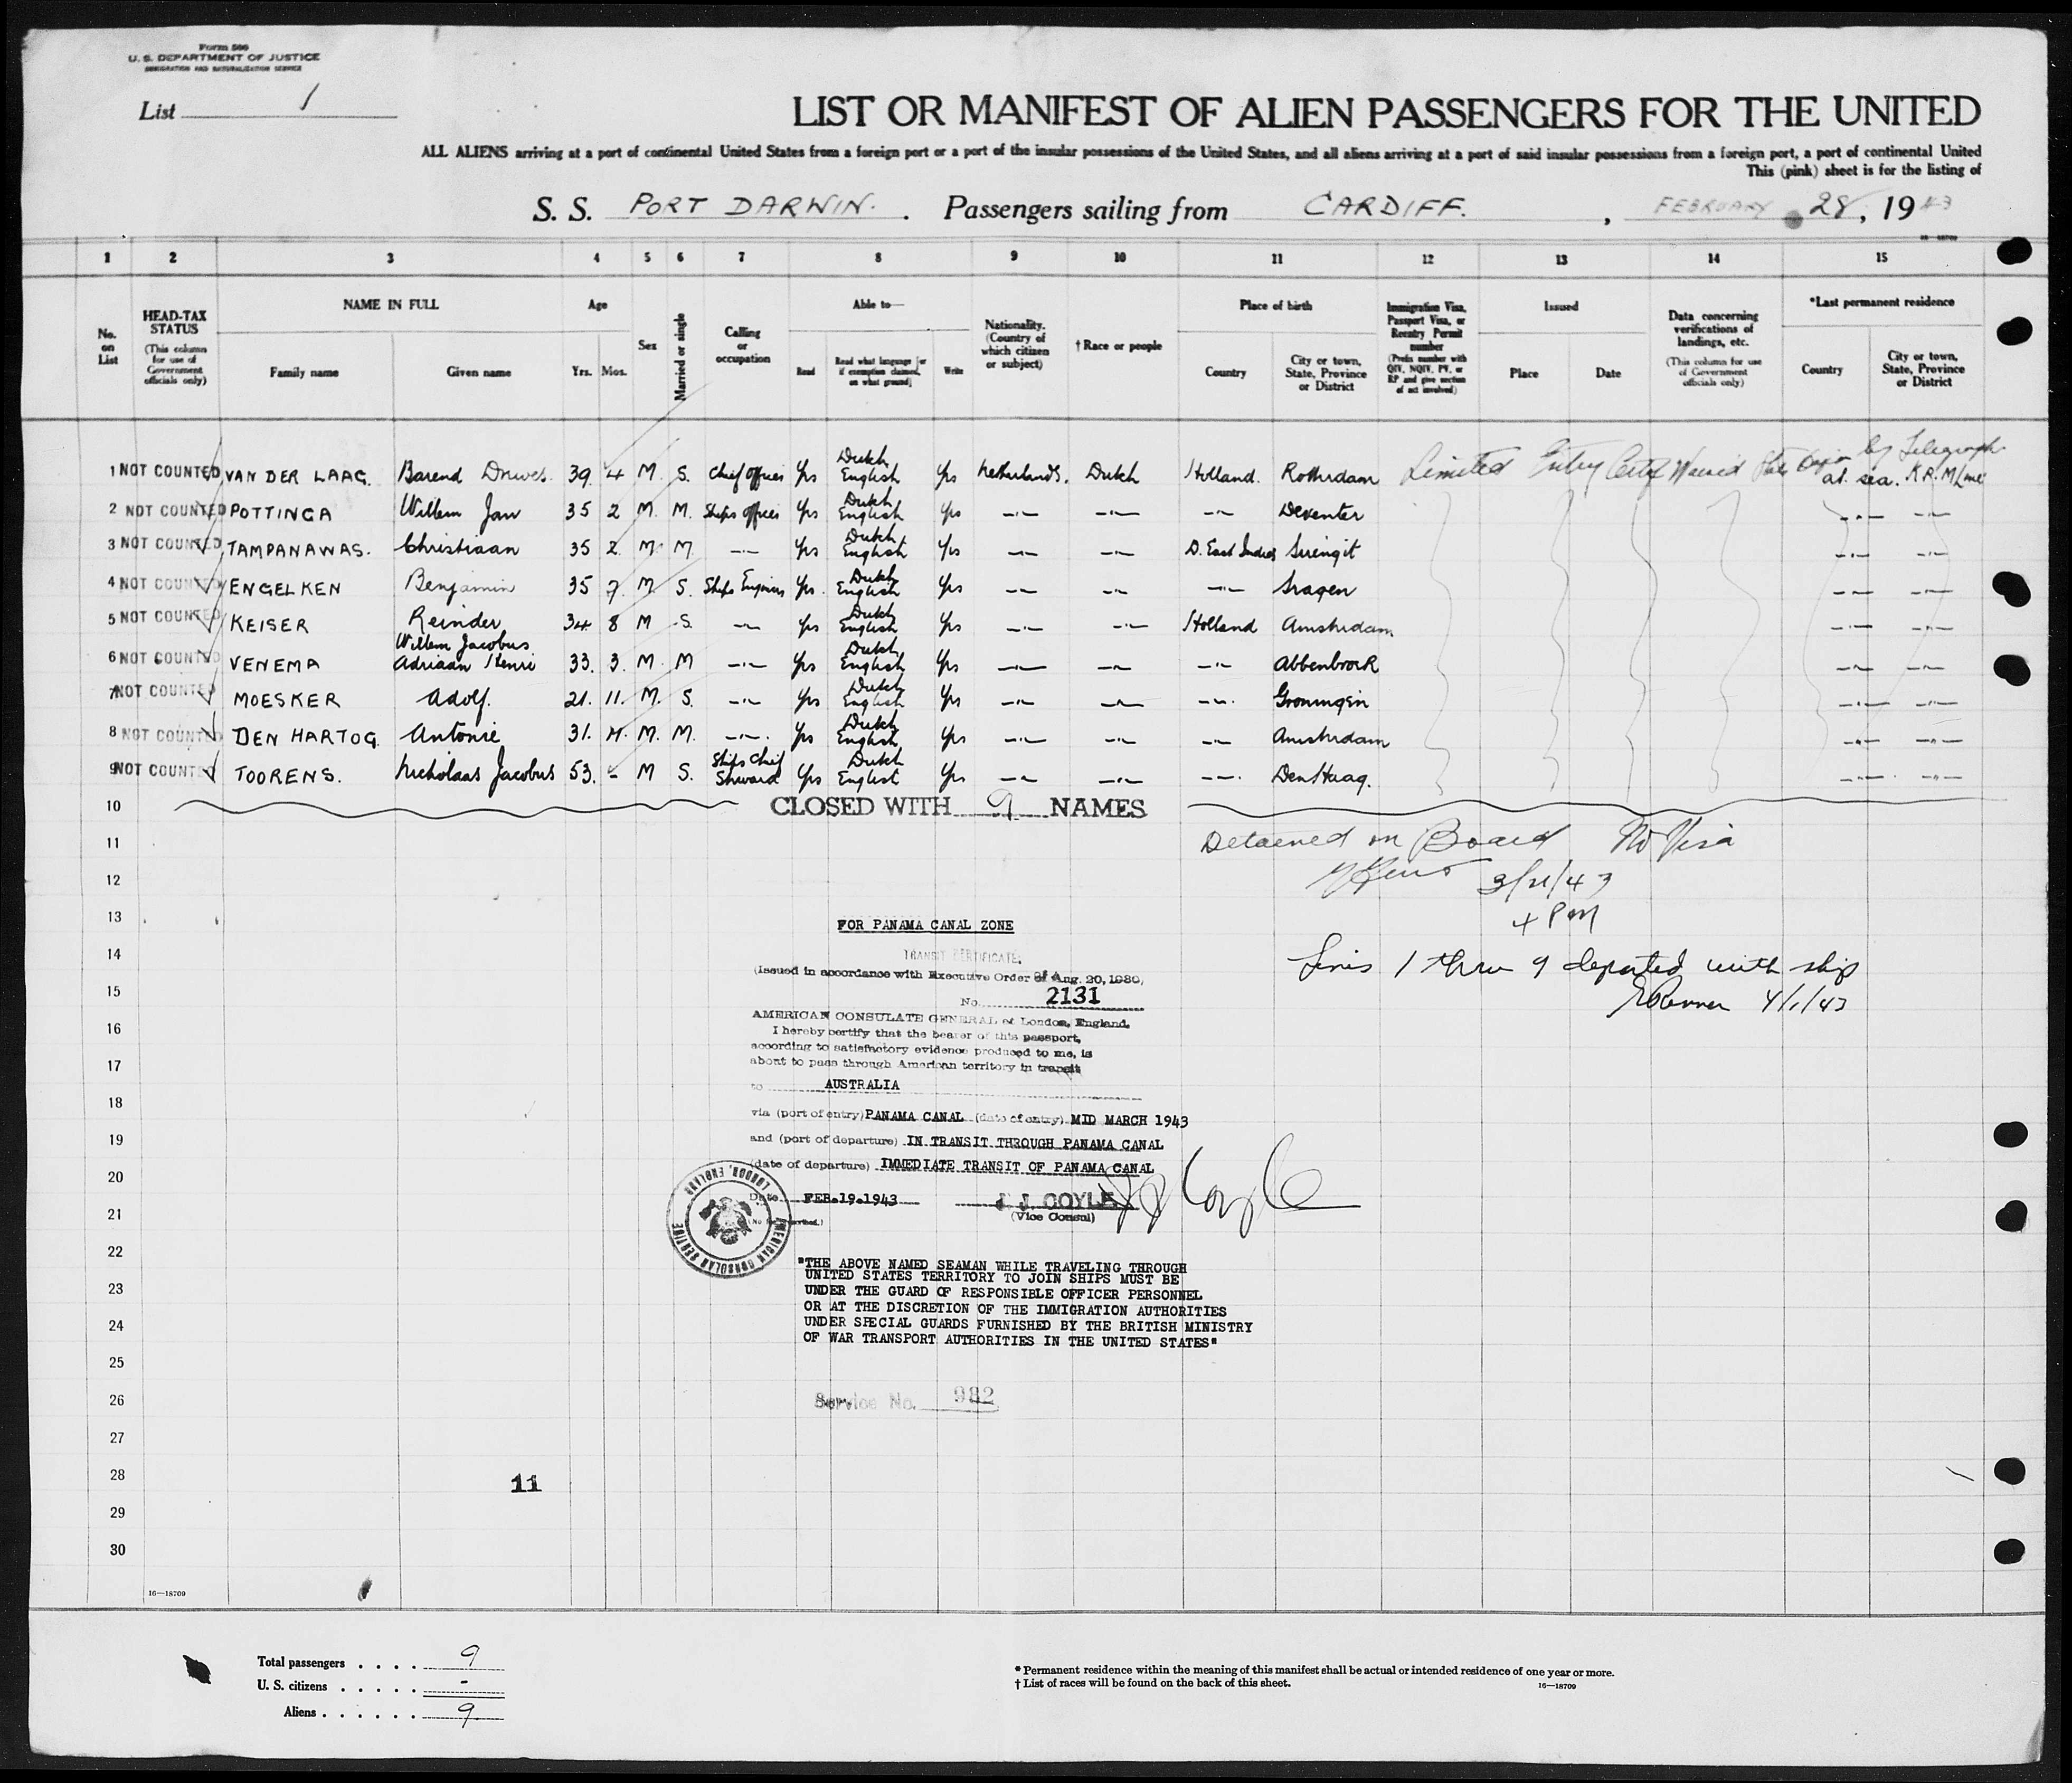 Form 500
U. S. DEPARTMENT OF JUSTICE
IMMIGRATION AND NATURALIZATION SERVICE
List 1
LIST OR MANIFEST OF ALIEN PASSENGERS FOR THE UNITED
ALL ALIENS arriving at a port of continental United States from a foreign port or a port of the insular possessions of the United States, and all aliens arriving at a port of said insular possessions from a foreign port, a port of continental United
This (pink) sheet is for the listing of
S. S. PORT DARWIN. Passengers sailing from CARDIFF. , FEBRUARY 28, 1943
16-18709
1 2 3 4 5 6 7 8 9 10 11 12 13 14 15
No. on List
HEAD-TAX STATUS (This column for use of Government officials only)
NAME IN FULL
Family name Given name
Age
Yrs. Mos.
Sex
Married or single
Calling or occupation
Able to—
Read Read what language [or if exemption claimed, on what ground] Write
Nationality. (Country of which citizen or subject)
† Race or people
Place of birth
Country City or town, State, Province or District
Immigration Visa, Passport Visa, or Reentry Permit number (Prefix number with QIV, NQIV, PV, or RP and give section of act involved)
Issued
Place Date
Data concerning verifications of landings, etc. (This column for use of Government officials only)
*Last permanent residence
Country City or town, State, Province or District
1 NOT COUNTED VAN DER LAAG. Barend Driwes. 39. 4 M. S. Chief Officer Yes Dutch English Yes Netherlands. Dutch Holland. Rotterdam Limited Entry Certf Waived by Telegraph at sea.
2 NOT COUNTED POTTINGA Willem Jan 35 2 M. M. Ships Officer Yes Dutch English Yes —"— —"— —"— Deventer —"— —"—
3 NOT COUNTED TAMPANAWAS. Christiaan 35 2 M. M —"— Yes Dutch English Yes —"— —"— D. East Indies —"— —"—
4 NOT COUNTED ENGELKEN Benjamin 35 7. M. S. Ships Engineer Yes. Dutch English Yes —"— —"— —"— Sragen —"— —"—
5 NOT COUNTED KEISER Reinder 34 8 M S. —"— Yes Dutch English Yes —"— —"— Holland Amsterdam —"— —"—
6 NOT COUNTED VENEMA Willem Jacobus Adriaan Henri 33. 3. M. M —"— Yes Dutch English Yes —"— —"— —"— Abbenbroek —"— —"—
7 NOT COUNTED MOESKER Adolf. 21. 11. M. S. —"— Yes Dutch English Yes —"— —"— —"—. Groningen —"— —"—
8 NOT COUNTED DEN HARTOG Antonie 31. M. M. —"—. Yes Dutch English Yes —"— —"— —"— Amsterdam —"— —"—
9 NOT COUNTED TOORENS. Nicholaas Jacobus 53. - M S. Ships Chief Steward Yes Dutch English Yes —"— —"— —"—. Den Haag. —"— —"—
10 CLOSED WITH 9 NAMES
11 Detained on Board No Visa
12 3/21/43
13 4 PM
FOR PANAMA CANAL ZONE
14 Lines 1 thru 9 departed with ship
TRANSIT CERTIFICATE.
(Issued in accordance with Executive Order of Aug. 20, 1930,
15 No. 2131
4/1/43
16 AMERICAN CONSULATE GENERAL at London, England.
I hereby certify that the bearer of this passport,
according to satisfactory evidence produced to me, is
17 about to pass through American territory in transit
to AUSTRALIA
18 via (port of entry) PANAMA CANAL (date of entry) MID MARCH 1943
19 and (port of departure) IN TRANSIT THROUGH PANAMA CANAL
20 (date of departure) IMMEDIATE TRANSIT OF PANAMA CANAL
21 Date FEB.19.1943 J. J. COYLE
(Vice Consul)
AMERICAN CONSULAR SERVICE LONDON, ENGLAND
22 "THE ABOVE NAMED SEAMAN WHILE TRAVELING THROUGH
UNITED STATES TERRITORY TO JOIN SHIPS MUST BE
23 UNDER THE GUARD OF RESPONSIBLE OFFICER PERSONNEL
OR AT THE DISCRETION OF THE IMMIGRATION AUTHORITIES
24 UNDER SPECIAL GUARDS FURNISHED BY THE BRITISH MINISTRY
OF WAR TRANSPORT AUTHORITIES IN THE UNITED STATES"
25
26 Service No. 982
27
28
11
29
30
16—18709
Total passengers . . . . 9
U. S. citizens . . . . . -
Aliens . . . . . . 9.
* Permanent residence within the meaning of this manifest shall be actual or intended residence of one year or more.
† List of races will be found on the back of this sheet.
16—18709